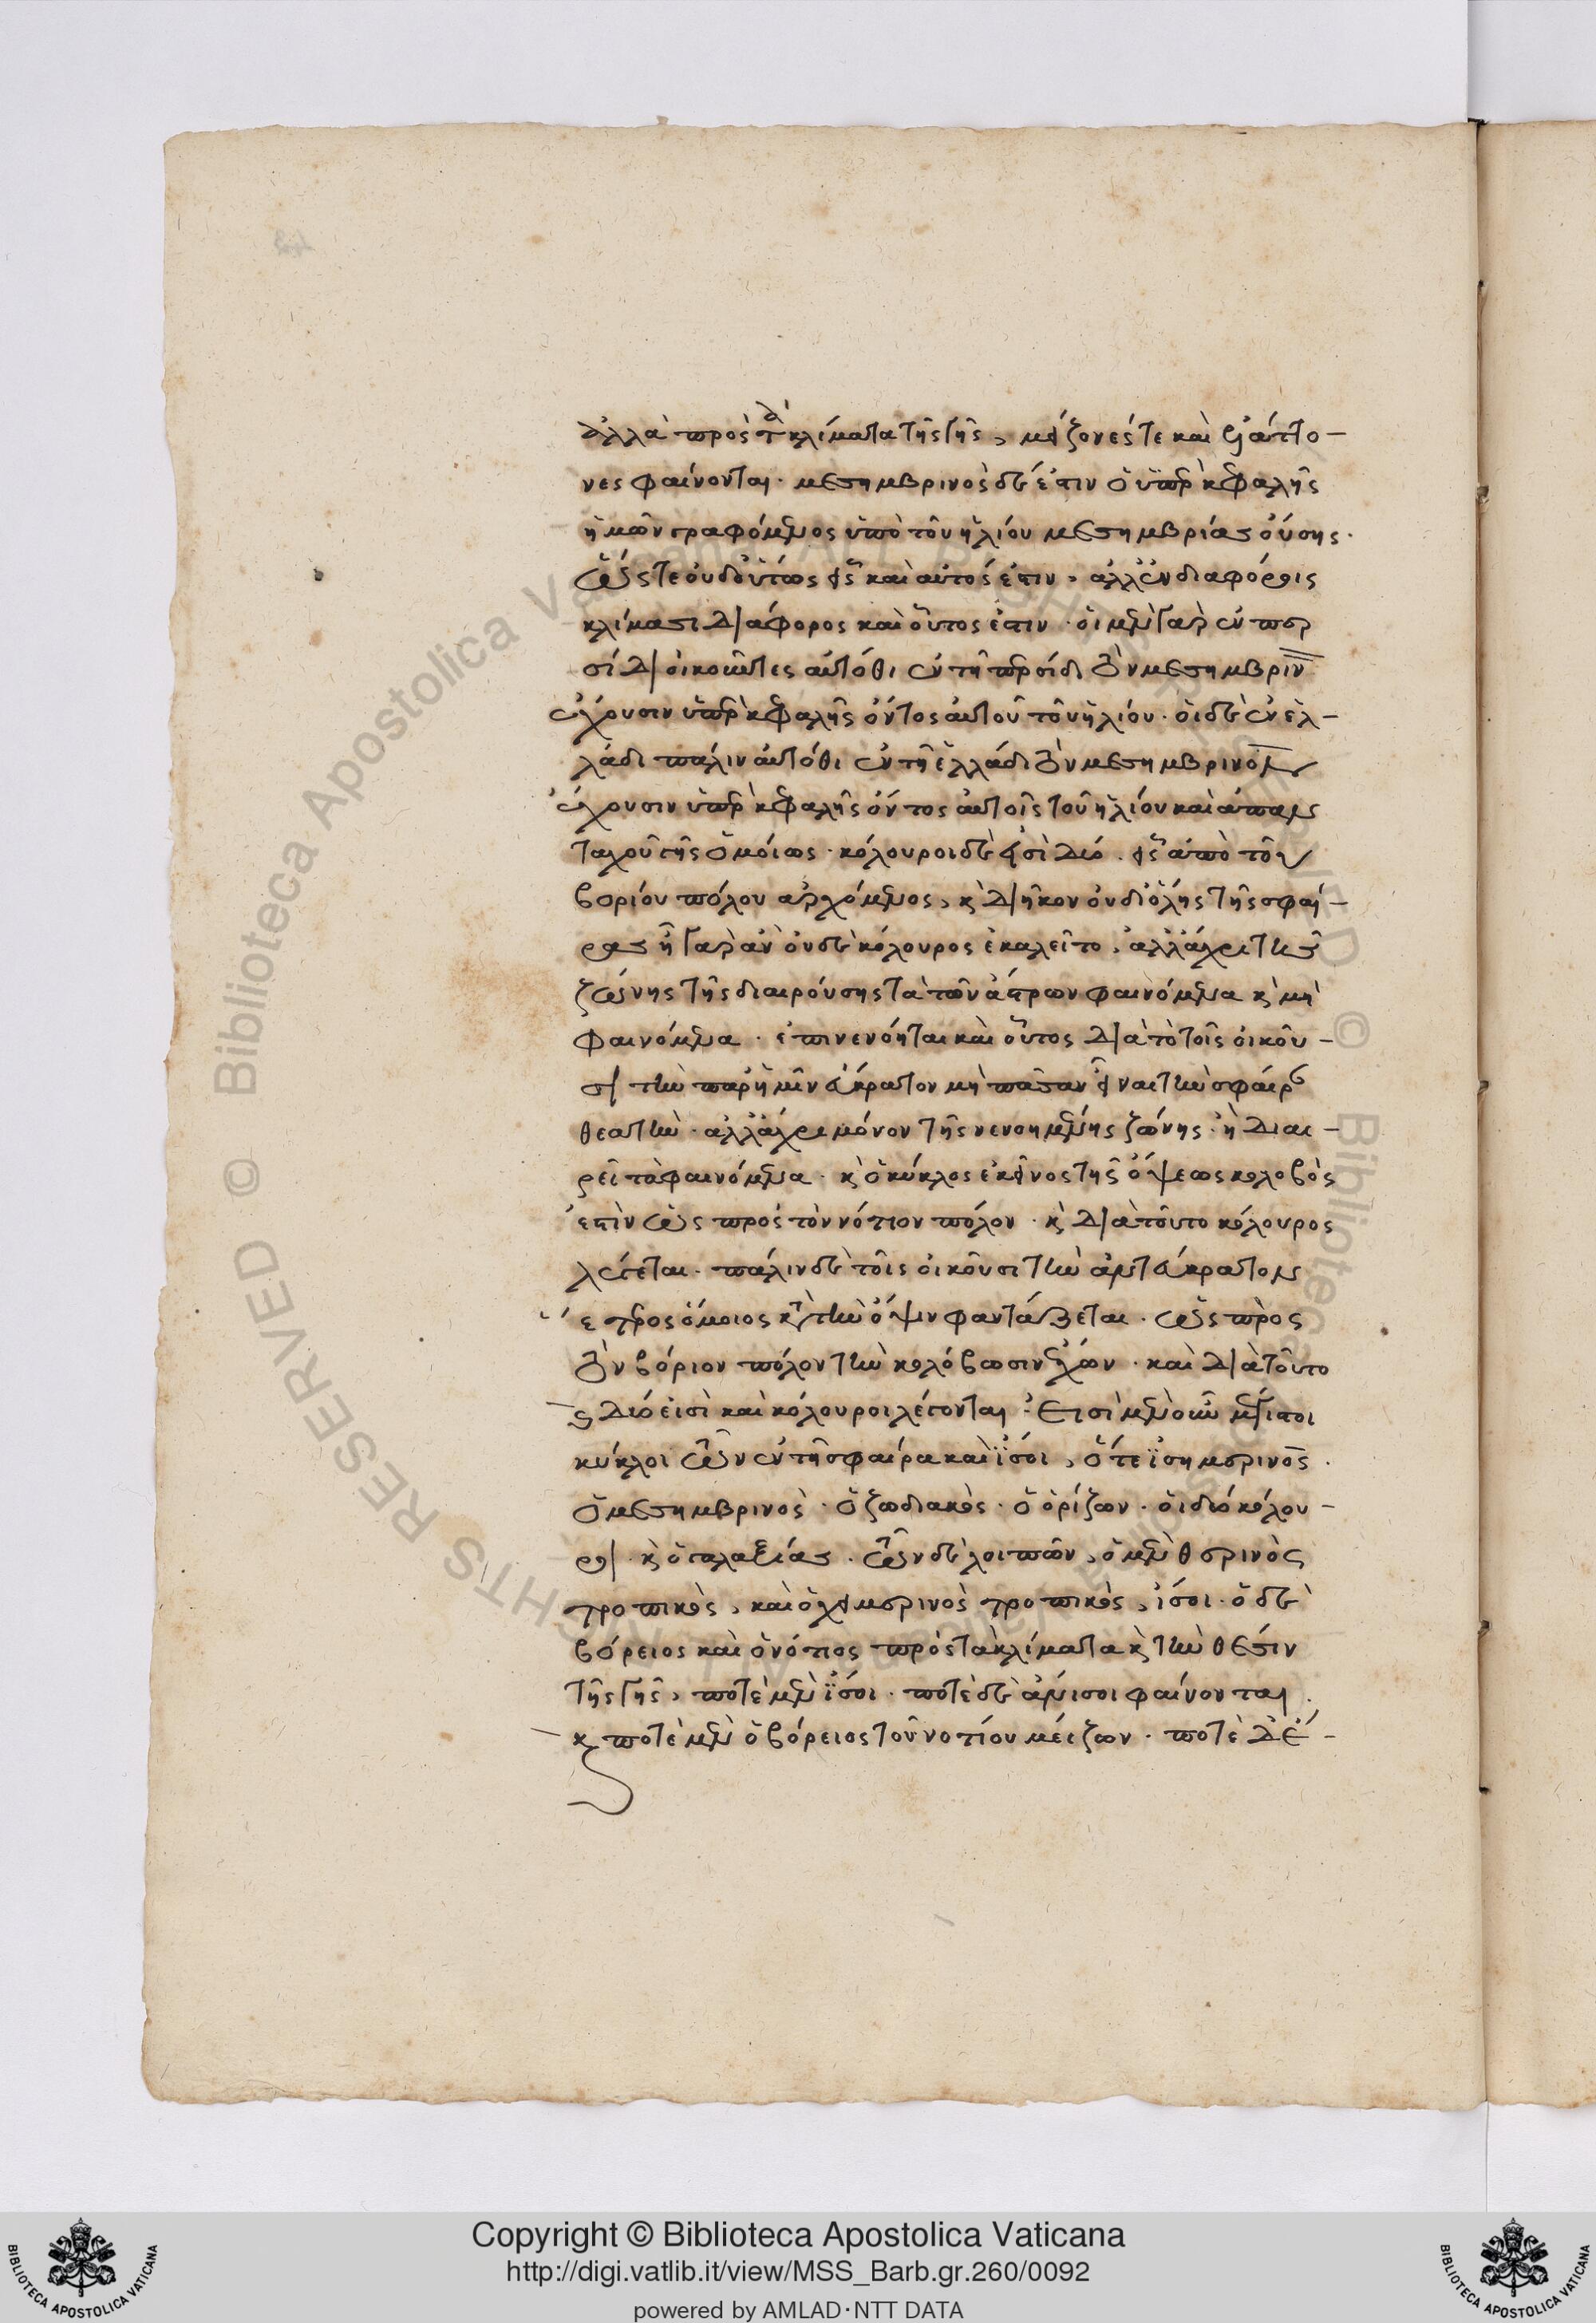 ἀλλὰ πρὸς τὰ κλίματα τῆς γῆς, μείζονές τε καὶ ἐλάττο-
νες φαίνονται. μεσημβρινὸς δέ ἐστιν ὁ ὑπὲρ κεφαλῆς
ἡμῶν γραφόμενος ὑπὸ τοῦ ἡλίου μεσημβρίας οὔσης.
ὥστε οὐδ οὕτως εἷς καὶ αὐτός ἐστιν, ἀλλ ἐν διαφόροις
κλίμασι διάφορος καὶ οὗτος ἐστιν. οἱ μὲν γὰρ ἐν περ
σίδι οἰκοῦντες αὐτόθι ἐν τῇ περσίδι τὸν μεσημβριν
ἔχουσιν ὑπὲρ κεφαλῆς ὄντος αὐτοῦ τοῦ ἡλίου. οἱ δὲ ἐν ἑλ-
λάδι πάλιν αὐτόθι ἐν τῇ ἑλλάδι τὸν μεσημβρινὸν
ἔχουσιν ὑπὲρ κεφαλῆς ὄντος αὐτοῖς τοῦ ἡλίου καὶ ἁπαν
ταχοῦ γῆς ὁμοίως. κόλουροι δὲ εἰσὶ δύο. εἷς ἀπὸ τοῦ
βορίου πόλου ἀρχόμενος, κ διῆκον οὐ δι ὅλης τῆς σφαί-
ρας ἢ γὰρ ἂν οὐδὲ κόλουρος ἐκαλεῖτο, ἀλλ ἄχρι τῆς
ζώνης τῆς διαιρούσης τὰ τῶν ἄστρων φαινόμενα κ μὴ
φαινόμενα. ἐπινενόηται καὶ οὗτος διὰ τὸ τοῖς οἰκοῦ-
σι τὴν παρ ἡμῖν εὔκρατον μὴ πᾶσαν εἶναι τὴν σφαίρ
θεατὴν. ἀλλ ἄχρι μόνον τῆς νενοημένης ζώνης. ἡ διαι-
ρεῖ τὰ φαινόμενα. κ ὁ κύκλος ἐκεῖνος τῆς ὄψεως κολοβὸς
ἐστὶν ὡς πρὸς τὸν νότιον πόλον. κ διὰ τοῦτο κόλουρος
λέγεται. πάλιν δὲ τοῖς οἰκοῦσι τὴν ἀντεύκρατον
ἕτερος ὅμοιος κατὰ τὴν ὄψιν φαντάζεται. ὡς πρὸς
τὸν βόριον πόλον τὴν κολόβωσιν ἔχων. καὶ διὰ τοῦτο
κ δύο εἰσὶ καὶ κόλουροι λέγονται. Εἰσὶ μὲν οὖν μέγιστοι
κύκλοι τῶν ἐν τῇ σφαίρα καὶ ἴσοι, ὅ τε ἰσημερινὸς.
ὁ μεσημβρινὸς. ὁ ζωδιακὸς. ὁ ὁρίζων. οἱ δύο κόλου-
ροι. κ ὁ γαλαξίας. τῶν δὲ λοιπῶν, ὁ μὲν θερινὸς
τροπικὸς, καὶ ὁ χειμερινὸς τροπικὸς, ἴσοι. ὁ δὲ
βόρειος καὶ ὁ νότιος πρὸς τὰ κλίματα κ τὴν θέσιν
τῆς γῆς, ποτὲ μὲν ἴσοι. ποτὲ δὲ ἄνισοι φαίνονται.
κ ποτὲ μὲν ὁ βόρειος τοῦ νοτίου μείζων. ποτὲ δὲ-
Copyright © Biblioteca Apostolica Vaticana
http://digi.vatlib.it/view/MSS_Barb.gr.260/0092
powered by AMLAD·NTT DATA